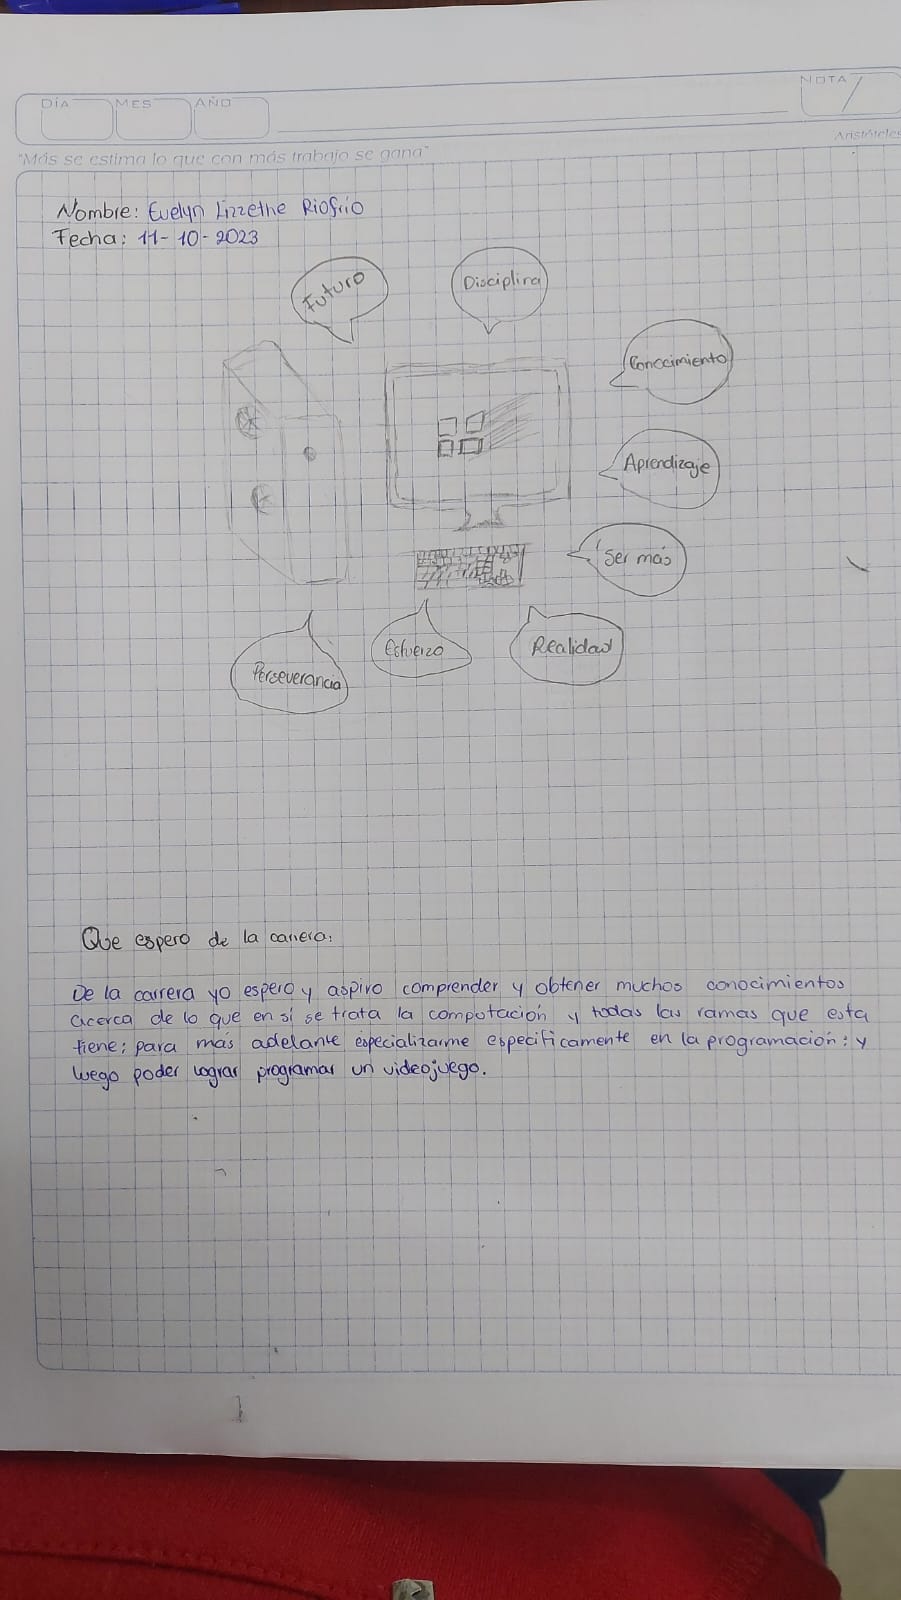 DÍA MES AÑO NOTA
"Más se estima lo que con más trabajo se gana" Aristóteles
Nombre: Evelyn Lizzethe Riofrío
Fecha: 11-10-2023
Futuro
Disciplina
Conocimiento
Aprendizaje
Ser más
Realidad
Esfuerzo
Perseverancia
Que espero de la carrera:
De la carrera yo espero y aspiro comprender y obtener muchos conocimientos
acerca de lo que en sí se trata la computación y todas las ramas que esta
tiene; para más adelante especializarme especificamente en la programación; y
luego poder lograr programar un videojuego.